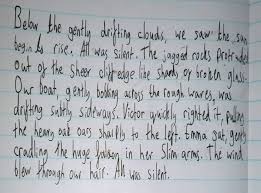 Below the gently drifting clouds, we saw the sun
begin to rise. All was silent. The jagged rocks protruded
out of the sheer cliff edge like shards of broken glass.
Our boat, gently bobbing across the rough waves, was
drifting subtly sideways. Victor quickly righted it, pulling
the heavy oars sharply to the left. Emma sat, gently
cradling the huge in her slim arms. The wind
blew through our hair. All was silent.